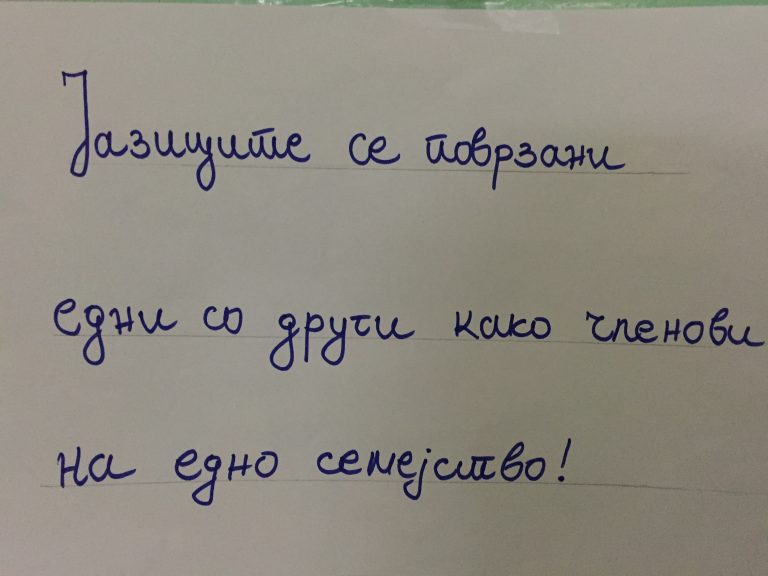 Јазиците се поврзани
едни со други како членови
на едно семејство!